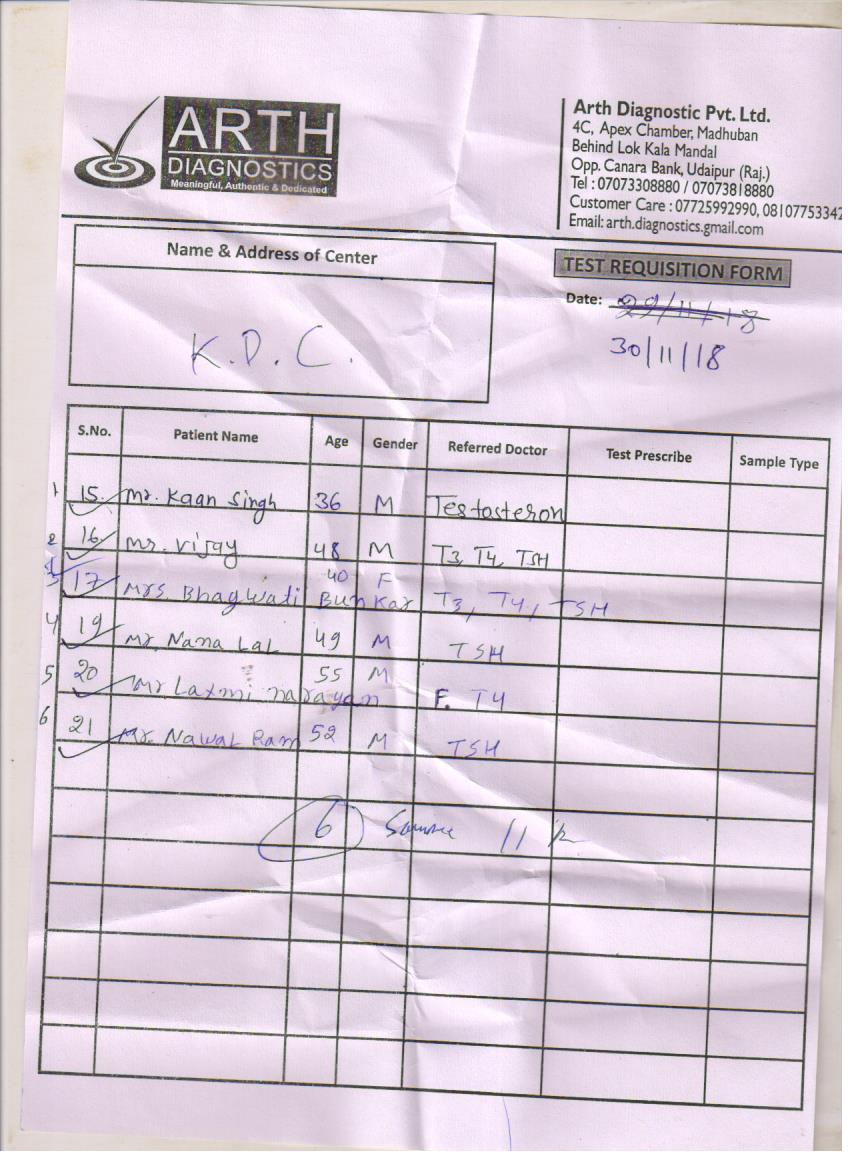 ARTH
DIAGNOSTICS
Meaningful, Authentic & Dedicated
Arth Diagnostic Pvt. Ltd.
4C, Apex Chamber, Madhuban
Behind Lok Kala Mandal
Opp. Canara Bank, Udaipur (Raj.)
Tel : 07073308880 / 07073818880
Customer Care : 07725992990, 08107753342
Email: arth.diagnostics.gmail.com
Name & Address of Center
K.D.C.
TEST REQUISITION FORM
Date: 29/11/18
30/11/18
S.No. Patient Name Age Gender Referred Doctor Test Prescribe Sample Type
1 15. Mr. Kaan Singh 36 M Testosteron
2 16 Mr. Vijay 48 M T3, T4, TSH
3 17 Mrs. Bhagwati Bunkar 40 F T3, T4, TSH
4 19 Mr. Nana Lal 49 M TSH
5 20 Mr Laxmi narayan 55 M F. T4
6 21 Mr. Nawal Ram 52 M TSH
6